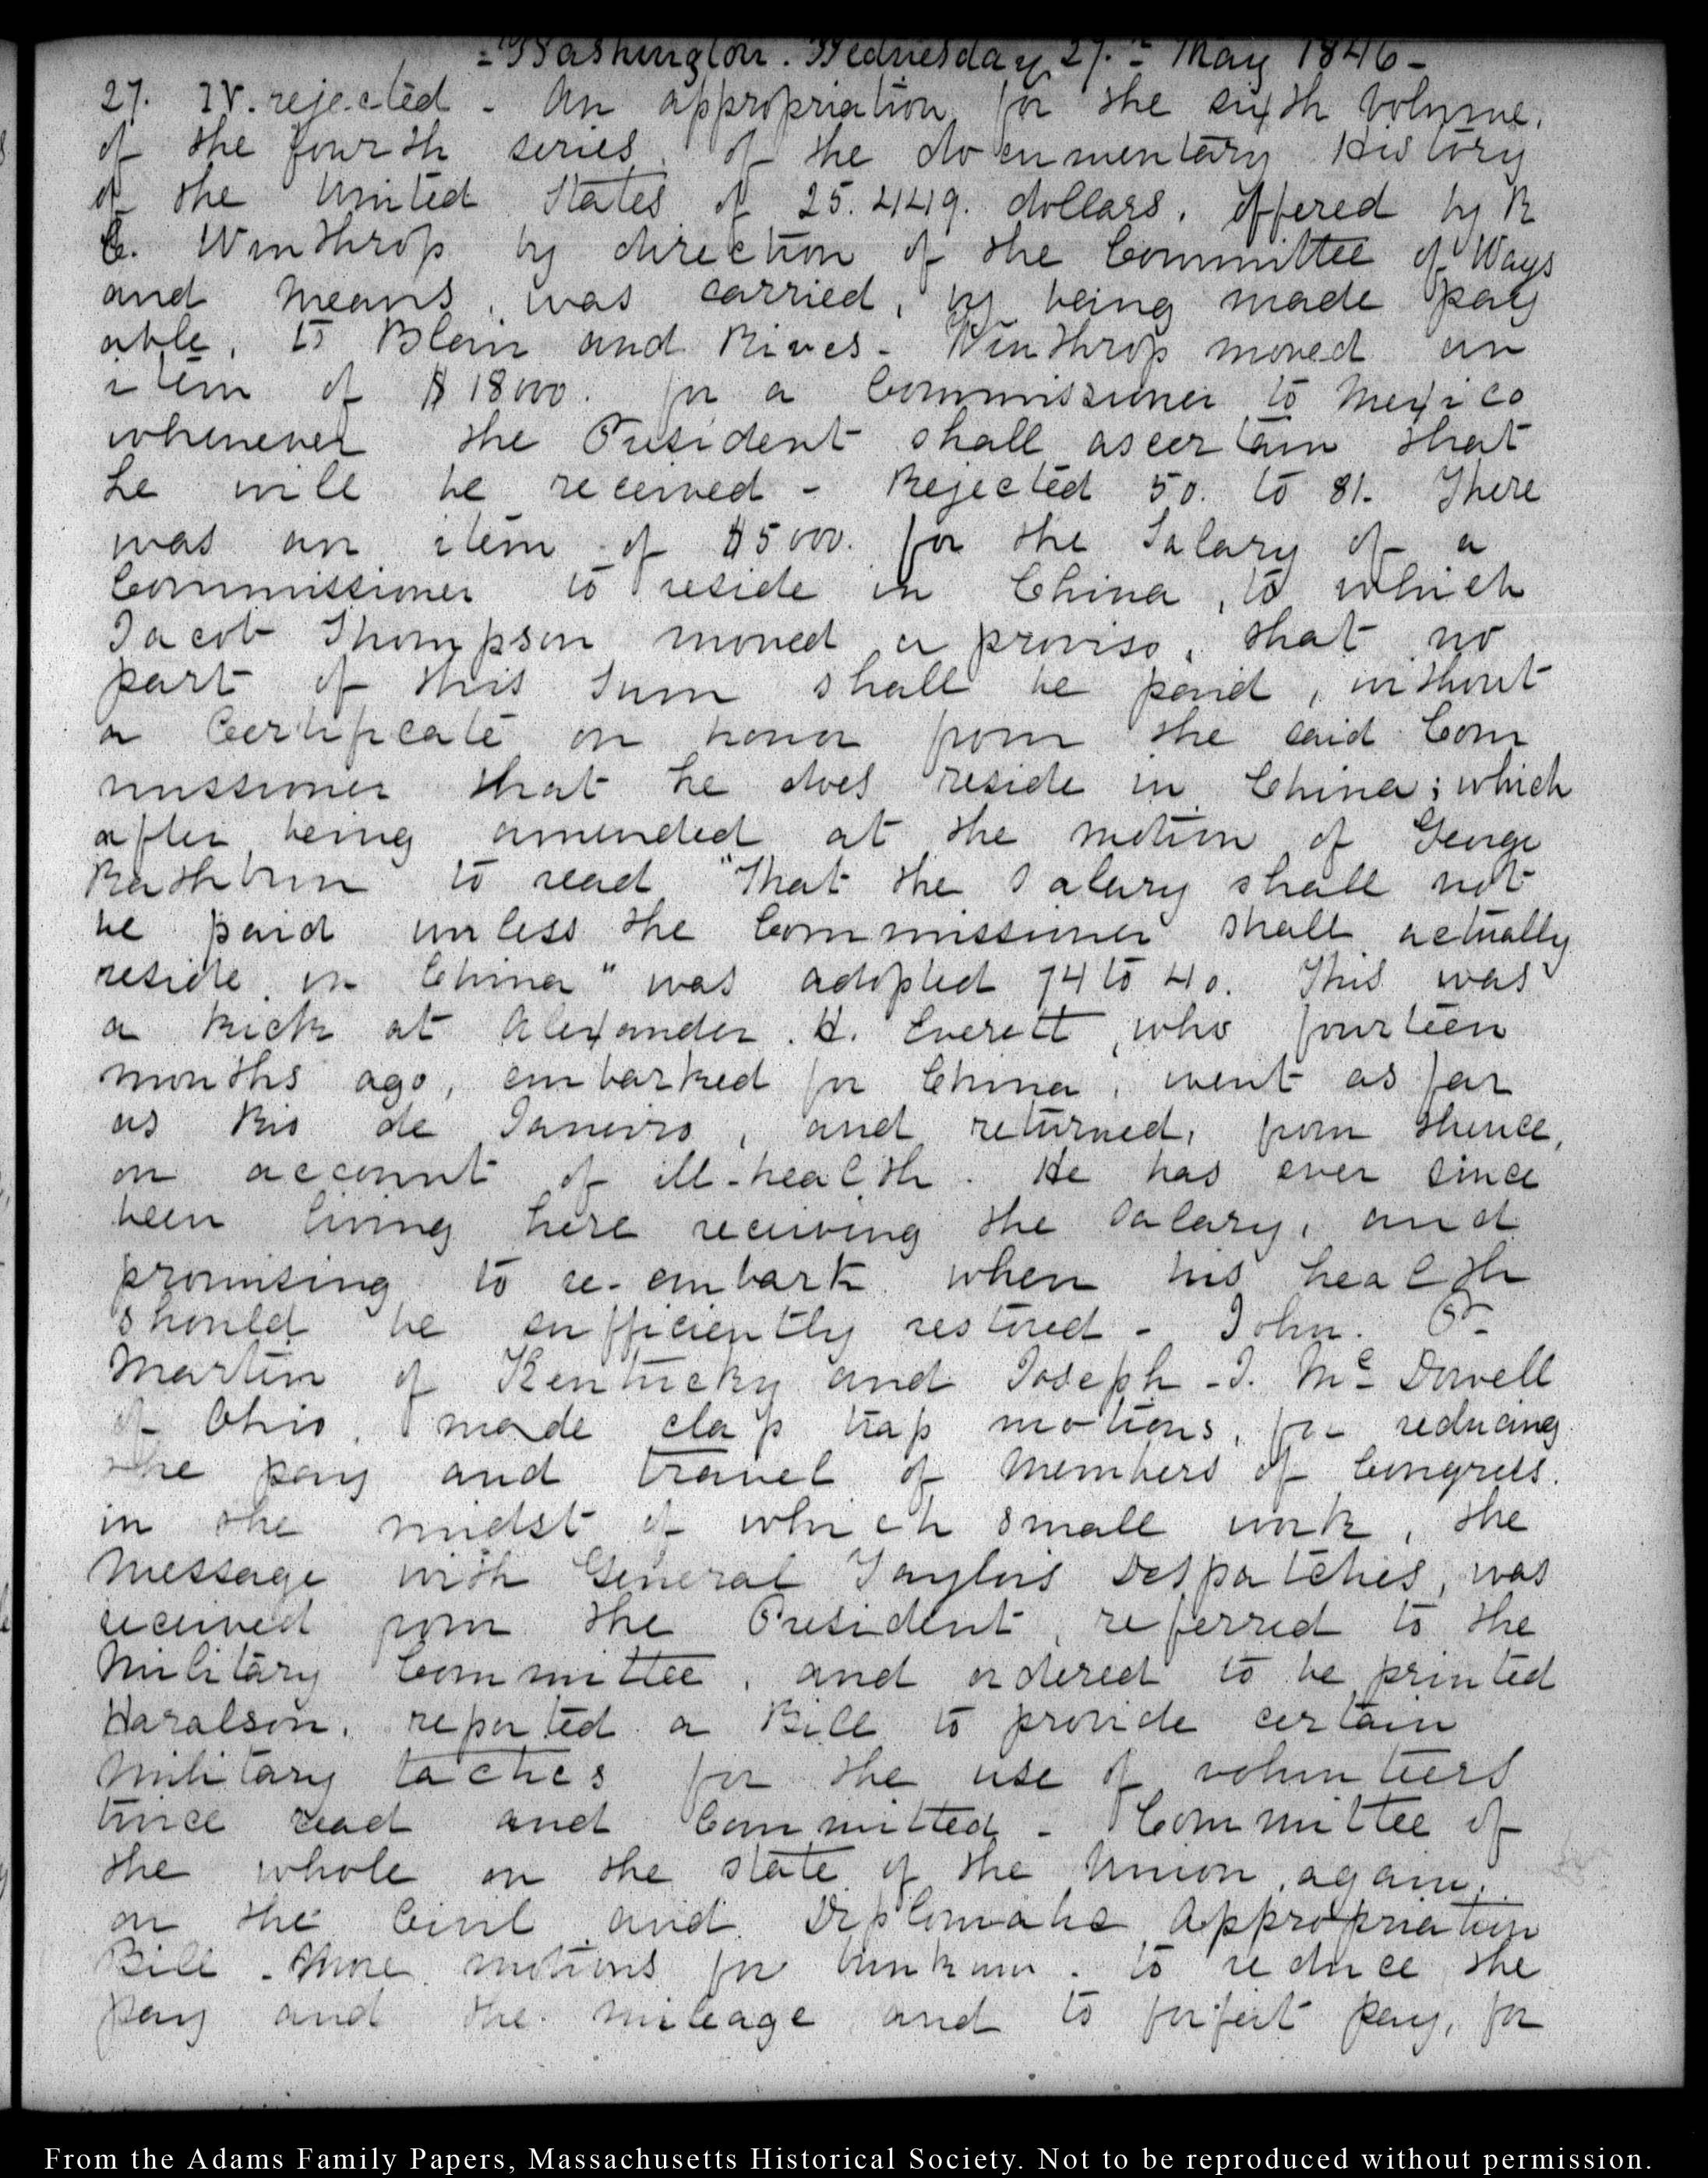 - Washington. Wednesday 27.th May 1846 -
27. IV. rejected - An appropriation for the sixth volume.
of the fourth series. of the documentary History
of the United States of 25.449. dollars. offered by R
C. Winthrop by direction of the Committee of Ways
and means, was carried, by being made pay
able, to Blair and Rives - Winthrop moved an
item of $18000. for a Commissioner to Mexico
whenever the President shall ascertain that
he will be received - Rejected 50. to 81. There
was an item of $5000. for the Salary of a
Commissioner to reside in China, to which
Jacob Thompson moved a proviso, that no
part of this Sum shall be paid, without
a Certificate on honor from the said Com
missioner that he does reside in China; which
after being amended at the motion of George
Rathbun to read "That the Salary shall not
be paid unless the Commissioner shall actually
reside in China" was adopted 74 to 40. This was
a kick at Alexander. H. Everett, who fourteen
months ago, embarked for China, went as far
as Rio de Janeiro, and returned, from thence,
on account of ill-health. He has ever since
been living here receiving the Salary, and
promising to re-embark when his health
should be sufficiently restored - John. P.
Martin of Kentucky and Joseph - J. Mc Dowell
of Ohio, made clap trap motions, for reducing
the pay and travel of members of Congress.
in the midst of which small work, the
message with General Taylor's Despatches, was
received from the President, referred to the
Military Committee, and ordered to be printed
Haralson. reported a Bill to provide certain
military tactics for the use of volunteers
twice read and Committed - Committee of
the whole on the state of the Union, again.
on the Civil and Diplomatic Appropriation
Bill - More motions for bunkum - to reduce the
pay and the mileage and to forfeit pay, for
From the Adams Family Papers, Massachusetts Historical Society. Not to be reproduced without permission.